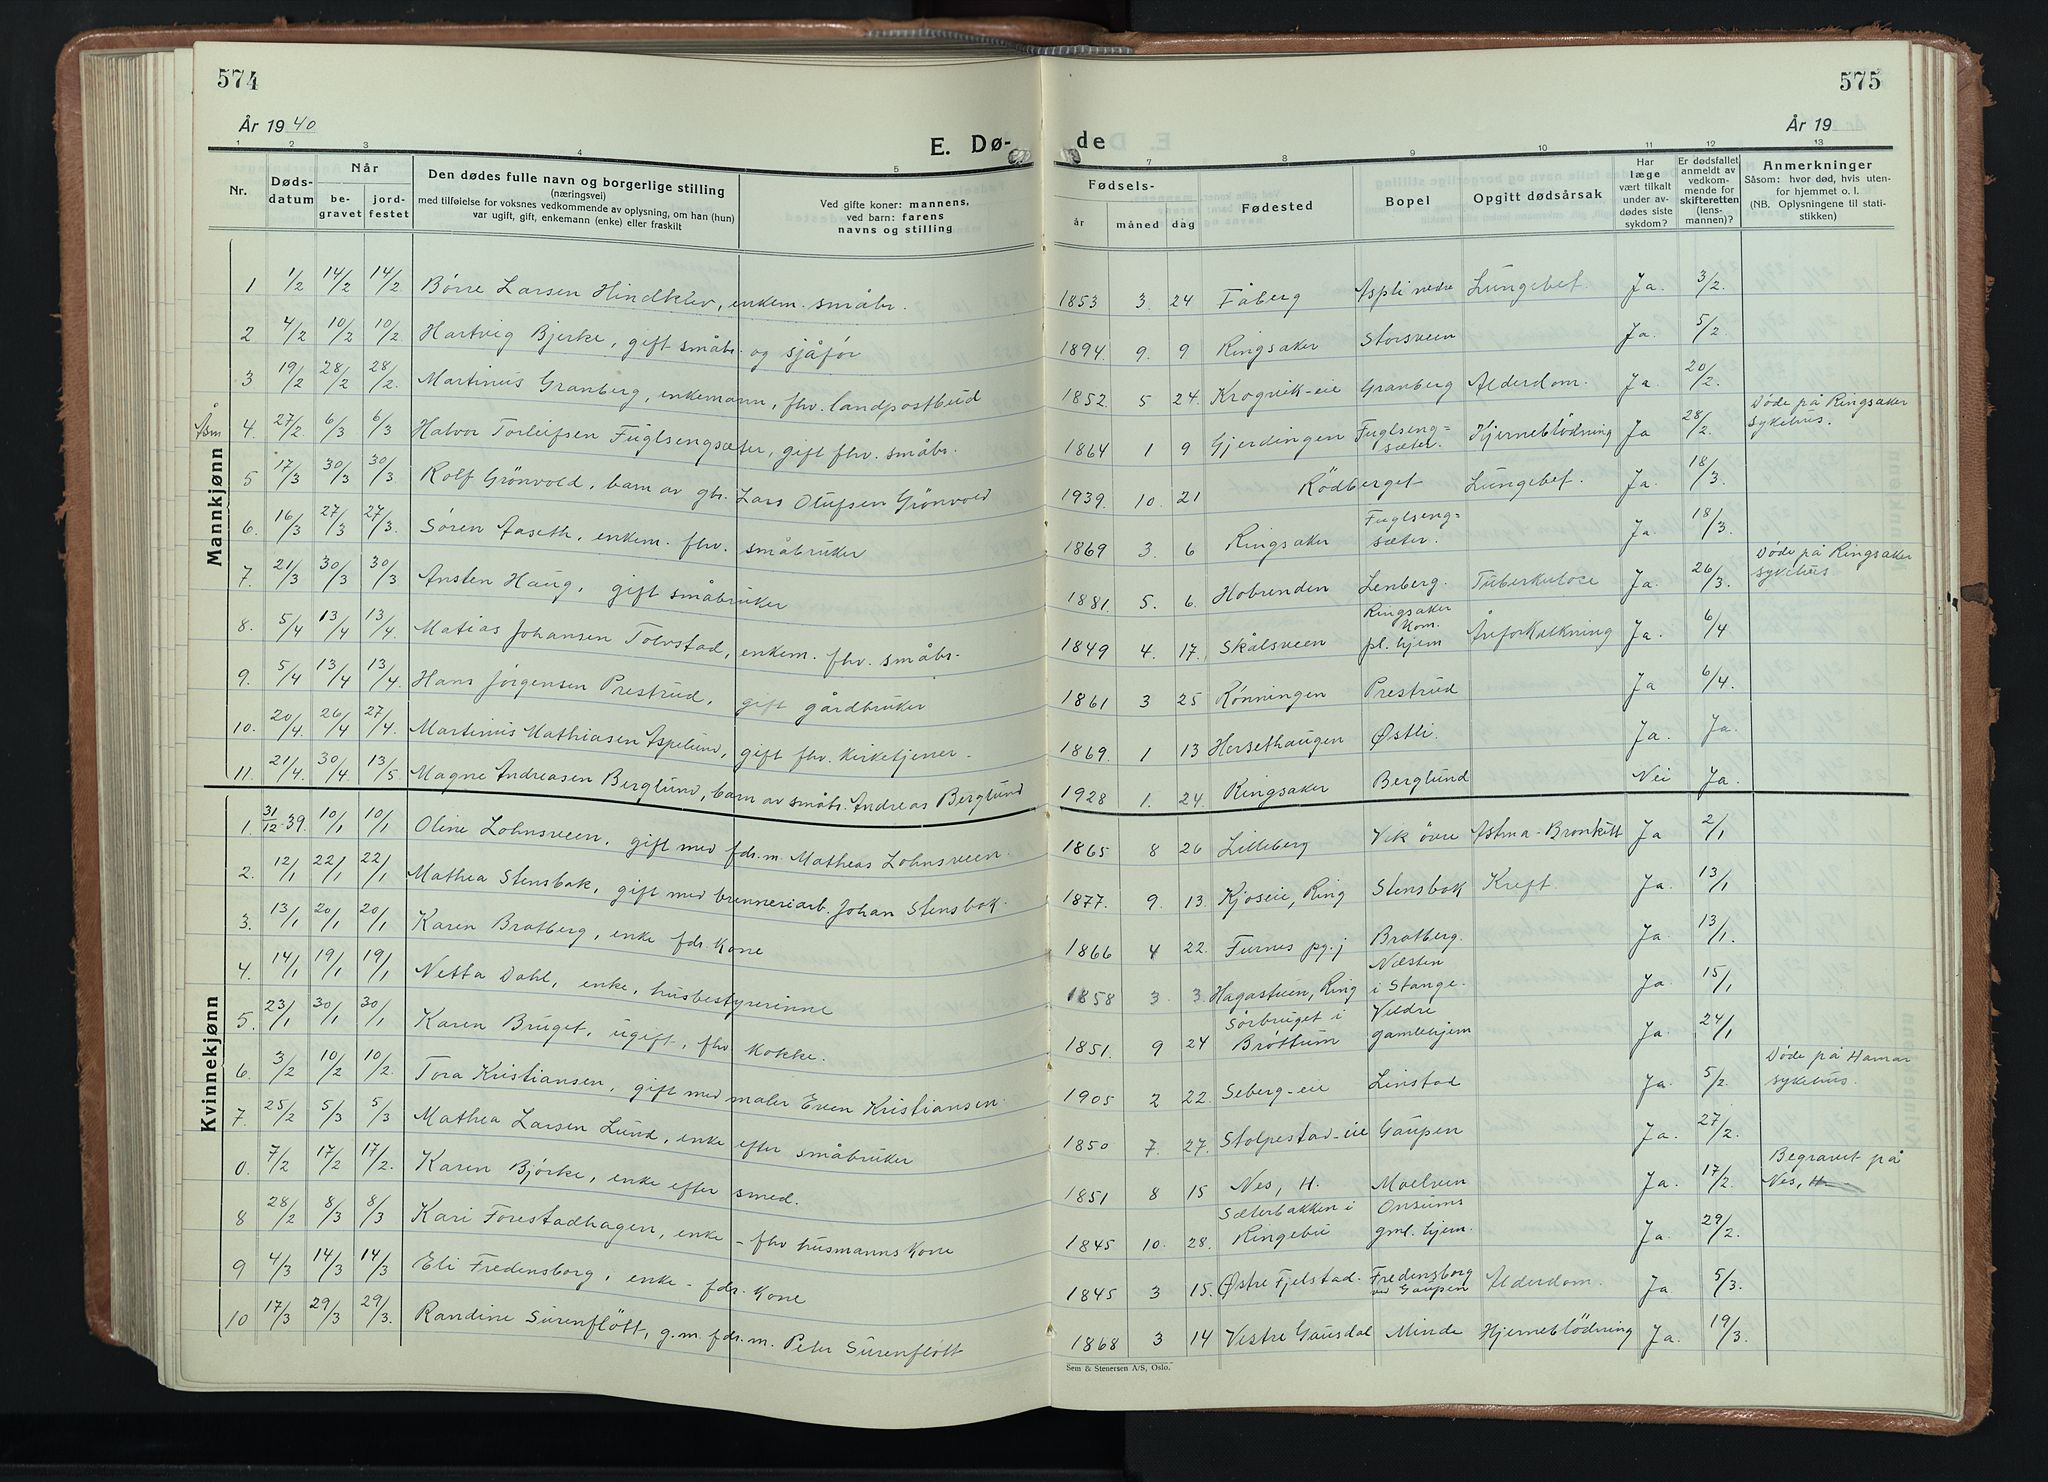 574
År 1940
E. Dø-
1 2 3 4 5
Nr.
Døds-
datum
Når
be-
gravet
jord-
festet
Den dødes fulle navn og borgerlige stilling
(næringsvei)
med tilføielse for voksnes vedkommende av oplysning, om han (hun)
var ugift, gift, enkemann (enke) eller fraskilt
Ved gifte koner: mannens,
ved barn: farens
navns og stilling
Mannkjønn
1 1/2 14/2 14/2 Børre Larsen Hindklev, enkem. småbr.
2 4/2 10/2 10/2 Hartvig Bjerke, gift småbr. og sjåfør
3 19/2 28/2 28/2. Martinus Granberg, enkemann, fhv. landpostbud
4. 27/2 6/3 6/3 Halvor Torleifsen Fuglsengsæter, gift fhv. småbr.
5 17/3 30/3 30/3 Rolf Grönvold, barn av gbr. Lars Olufsen Grönvold
6. 16/3 27/3 27/3. Søren Aaseth, enkem. fhv. småbruker
7. 21/3 30/3 30/3 Ansten Haug, gift småbruker
8. 5/4 13/4 13/4. Matias Johansen Tolvstad, enkem. fhv. småbr.
9. 5/4 13/4 13/4. Hans Jørgensen Prestrud, gift gårdbruker
10. 20/4. 26/4 27/4. Martinus Mathiasen Aspelund, gift fhv. kirketjener.
11. 21/4. 30/4 13/5. Magne Andreasen Berglund, barn av småbr. Andreas Berglund
Kvinnekjønn
1. 31/12-39. 10/1 10/1 Oline Lohnsveen, gift med fdr.m. Mathias Lohnsveen.
2. 12/1 22/1 22/1 Mathea Stensbak, gift med brenneriarb. Johan Stensbak.
3. 13/1 20/1 20/1 Karen Bratberg, enke fdr. kone
4. 14/1 19/1 19/1 Netta Dahl, enke, husbestyrerinne
5. 23/1 30/1 30/1 Karen Bruget, ugift, fhv. kokke.
6. 3/2 10/2 10/2. Tora Kristiansen, gift med maler Even Kristiansen.
7. 25/2 5/3 5/3 Mathea Larsen Lund, enke efter småbruker
0. 7/2 17/2 17/2. Karen Bjørke, enke efter smed.
8 28/2 8/3 8/3 Kari Forestadhagen, enke - fhv husmanns kone
9 4/3 14/3 14/3 Eli Fredensborg, enke - fdr. kone
10 17/3 29/3 29/3. Randine Surenflöt, g.m. fdr.m. Peter Surenflöt
575
År 19
de
7 8 9 10 11 12 13
Fødsels-
år måned dag
Fødested
Bopel
Opgitt dødsårsak
Har
læge
vært tilkalt
under av-
dødes siste
sykdom?
Er dødsfallet
anmeldt av
vedkom-
mende for
skifteretten
(lens-
mannen)?
Anmerkninger
Såsom: hvor død, hvis uten-
for hjemmet o. l.
(NB. Oplysningene til stati-
stikken)
1853 3. 24 Fåberg Aspli nedre Lungebet. Ja. 3/2.
1894. 9. 9 Ringsaker Storsveen Ja. 5/2
1852. 5 24. Krogvik-eie Granberg Alderdom. Ja. 20/2.
1864 1 9 Gjerdingen Fuglseng=
sæter. Hjerneblödning Ja 28/2. Døde på Ringsaker
sykehus.
1939. 10. 21 Rödberget Lungebet. Ja. 18/3.
1869 3. 6 Ringsaker Fuglseng=
sæter. Ja. 18/3.
1881. 5. 6. Hobrenden Lenberg. Tuberkulose Ja. 26/3. Døde på Ringsaker
sykehus
1849 4. 17. Skålsveen Ringsaker
Kom.
pl. hjem Åreforkalkning Ja. 6/4
1861 3 25 Rønningen Prestrud Ja 6/4.
1869. 1 13 Horsethaugen Østli. Ja. Ja.
1928 1. 24. Ringsaker Berglund Nei Ja.
1865 8 26 Lilleberg Vik övre Astma-Bronkitt Ja 2/1
1877. 9. 13. Kjoseie, Ring Stensbak Kreft. Ja. 13/1
1866 4 22. Furnes pg.j Bratberg. Ja. 13/1.
1858 3. 3. Hagastuen, Ring Næsten
i Stange. Ja. 15/1
1851. 9 24 Sørbruget i
Brøttum Veldre
gamlehjem Ja. 24/1
1905 2 22. Seberg-eie Linstad Ja. 5/2. Døde på Hamar
sykehus.
1850 7. 27. Stolpestad-eie Gaupen Ja. 27/2.
1851 8 15 Nes, H. Moelven Ja. 17/2. Begravet på
Nes, H.
1845 10. 28. Sæterbakken i
Ringebu Onsums
gml. hjem. Ja. 29/2.
1845 3 15. Østre Fjelstad. Fredensborg
ved Gaupen Alderdom. Ja 5/3.
1868 3 14 Vestre Gausdal Minde Hjerneblödning Ja. 19/3.
Sem & Stenersen A/S, Oslo.